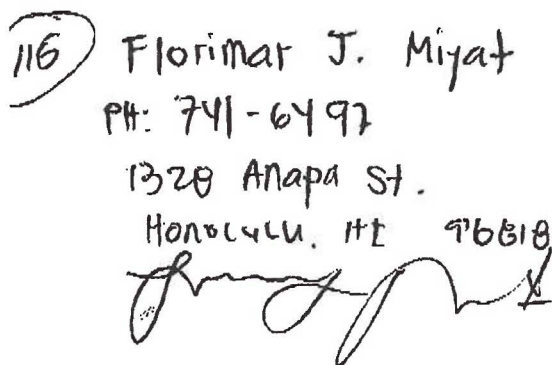 116 Florimar J. Miyat
PH: 741-6497
1328 Anapa St.
Honolulu. HI 96818